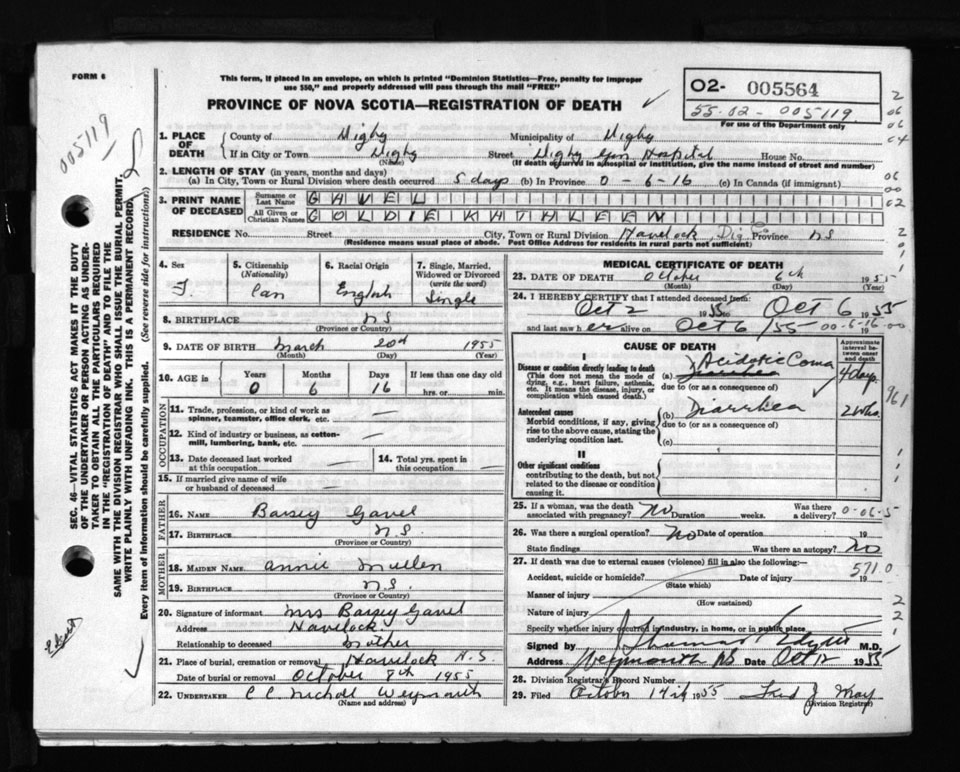 FORM 6
This form, if placed in an envelope, on which is printed "Dominion Statistics—Free, penalty for improper
use $50," and properly addressed will pass through the mail "FREE"
PROVINCE OF NOVA SCOTIA—REGISTRATION OF DEATH
O2- 005564
55-02-005119
For use of the Department only
005119
SEC. 46—VITAL STATISTICS ACT MAKES IT THE DUTY
OF THE UNDERTAKER OR PERSON ACTING AS UNDER-
TAKER TO OBTAIN ALL THE PARTICULARS REQUIRED
IN THE "REGISTRATION OF DEATH" AND TO FILE THE
SAME WITH THE DIVISION REGISTRAR WHO SHALL ISSUE THE BURIAL PERMIT.
WRITE PLAINLY WITH UNFADING INK. THIS IS A PERMANENT RECORD.
Every item of information should be carefully supplied. (See reverse side for instructions)
1. PLACE OF DEATH County of Digby Municipality of Digby
If in City or Town Digby (Name) Street Digby Gen Hospital House No.
(If death occurred in a hospital or institution, give the name instead of street and number)
2. LENGTH OF STAY (in years, months and days)
(a) In City, Town or Rural Division where death occurred 5 days (b) In Province 0-6-16 (c) In Canada (if immigrant)
3. PRINT NAME OF DECEASED
Surname or Last Name GAVEL
All Given or Christian Names GOLDIE KATHLEEN
RESIDENCE No. Street City, Town or Rural Division Havelock, Dig. Co Province NS
(Residence means usual place of abode. Post Office Address for residents in rural parts not sufficient)
4. Sex F.
5. Citizenship (Nationality) Can
6. Racial Origin English
7. Single, Married, Widowed or Divorced (write the word) Single
8. BIRTHPLACE N.S
(Province or Country)
9. DATE OF BIRTH March 20d 1955
(Month) (Day) (Year)
10. AGE in Years 0 Months 6 Days 16 If less than one day old hrs. or min.
OCCUPATION
11. Trade, profession, or kind of work as spinner, teamster, office clerk, etc. —
12. Kind of industry or business, as cotton-mill, lumbering, bank, etc. —
13. Date deceased last worked at this occupation —
14. Total yrs. spent in this occupation —
15. If married give name of wife or husband of deceased
FATHER
16. Name Barsey Gavel
17. BIRTHPLACE N.S.
(Province or Country)
MOTHER
18. MAIDEN NAME Annie Mullen
19. BIRTHPLACE N.S.
(Province or Country)
20. Signature of informant Mrs Barsey Gavel
Address Havelock
Relationship to deceased Mother
21. Place of burial, cremation or removal Havelock N.S.
Date of burial or removal October 8th 1955
22. UNDERTAKER C C Nicholl Weymouth
(Name and address)
MEDICAL CERTIFICATE OF DEATH
23. DATE OF DEATH October 6th 1955
(Month) (Day) (Year)
24. I HEREBY CERTIFY that I attended deceased from:
Oct 2 1955 to Oct 6 1955
and last saw her alive on Oct 6 1955 00-6-16-00
CAUSE OF DEATH
Approximate interval between onset and death
I
Disease or condition directly leading to death
(This does not mean the mode of dying, e.g., heart failure, asthenia, etc. It means the disease, injury, or complication which caused death.)
(a) Acidotic Coma 4 days
due to (or as a consequence of)
Antecedent causes
Morbid conditions, if any, giving rise to the above cause, stating the underlying condition last.
(b) Diarrhea 2 wks.
due to (or as a consequence of)
(c)
II
Other significant conditions
contributing to the death, but not related to the disease or condition causing it.
25. If a woman, was the death associated with pregnancy? No Duration weeks. Was there a delivery? 0-06-5
26. Was there a surgical operation? No Date of operation 19
State findings Was there an autopsy? No
27. If death was due to external causes (violence) fill in also the following: 571.0
Accident, suicide or homicide? Date of injury 19
(State which)
Manner of injury
(How sustained)
Nature of injury
Specify whether injury occurred in industry, in home, or in public place
Signed by M.D.
Address Weymouth NS Date Oct 12 1955
28. Division Registrar's Record Number
29. Filed October 14th 1955 Fred J May
(Division Registrar)